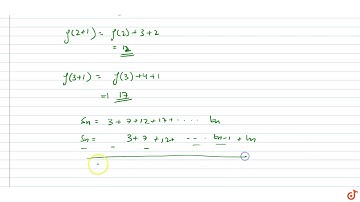 f(2+1) = f(2)+3+2
= 12
f(3+1) = f(3)+4+1
=) 17
Sn = 3+7+12+17+ ..... tn
Sn = 3+7+12+ --- .. tn-1 + tn